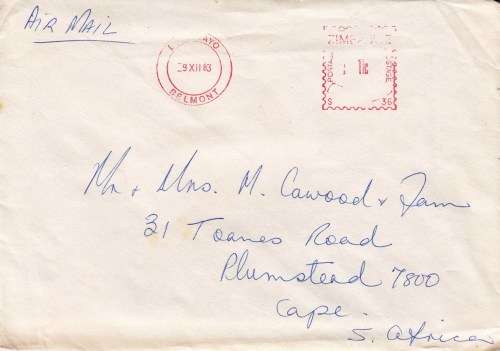 Air Mail
9 XII 83
BELMONT
ZIMBABWE
POSTAGE
11c
S 36
Mr & Mrs. M. Cawood & Fam
31 Toanes Road
Plumstead 7800
Cape.
S. Africa